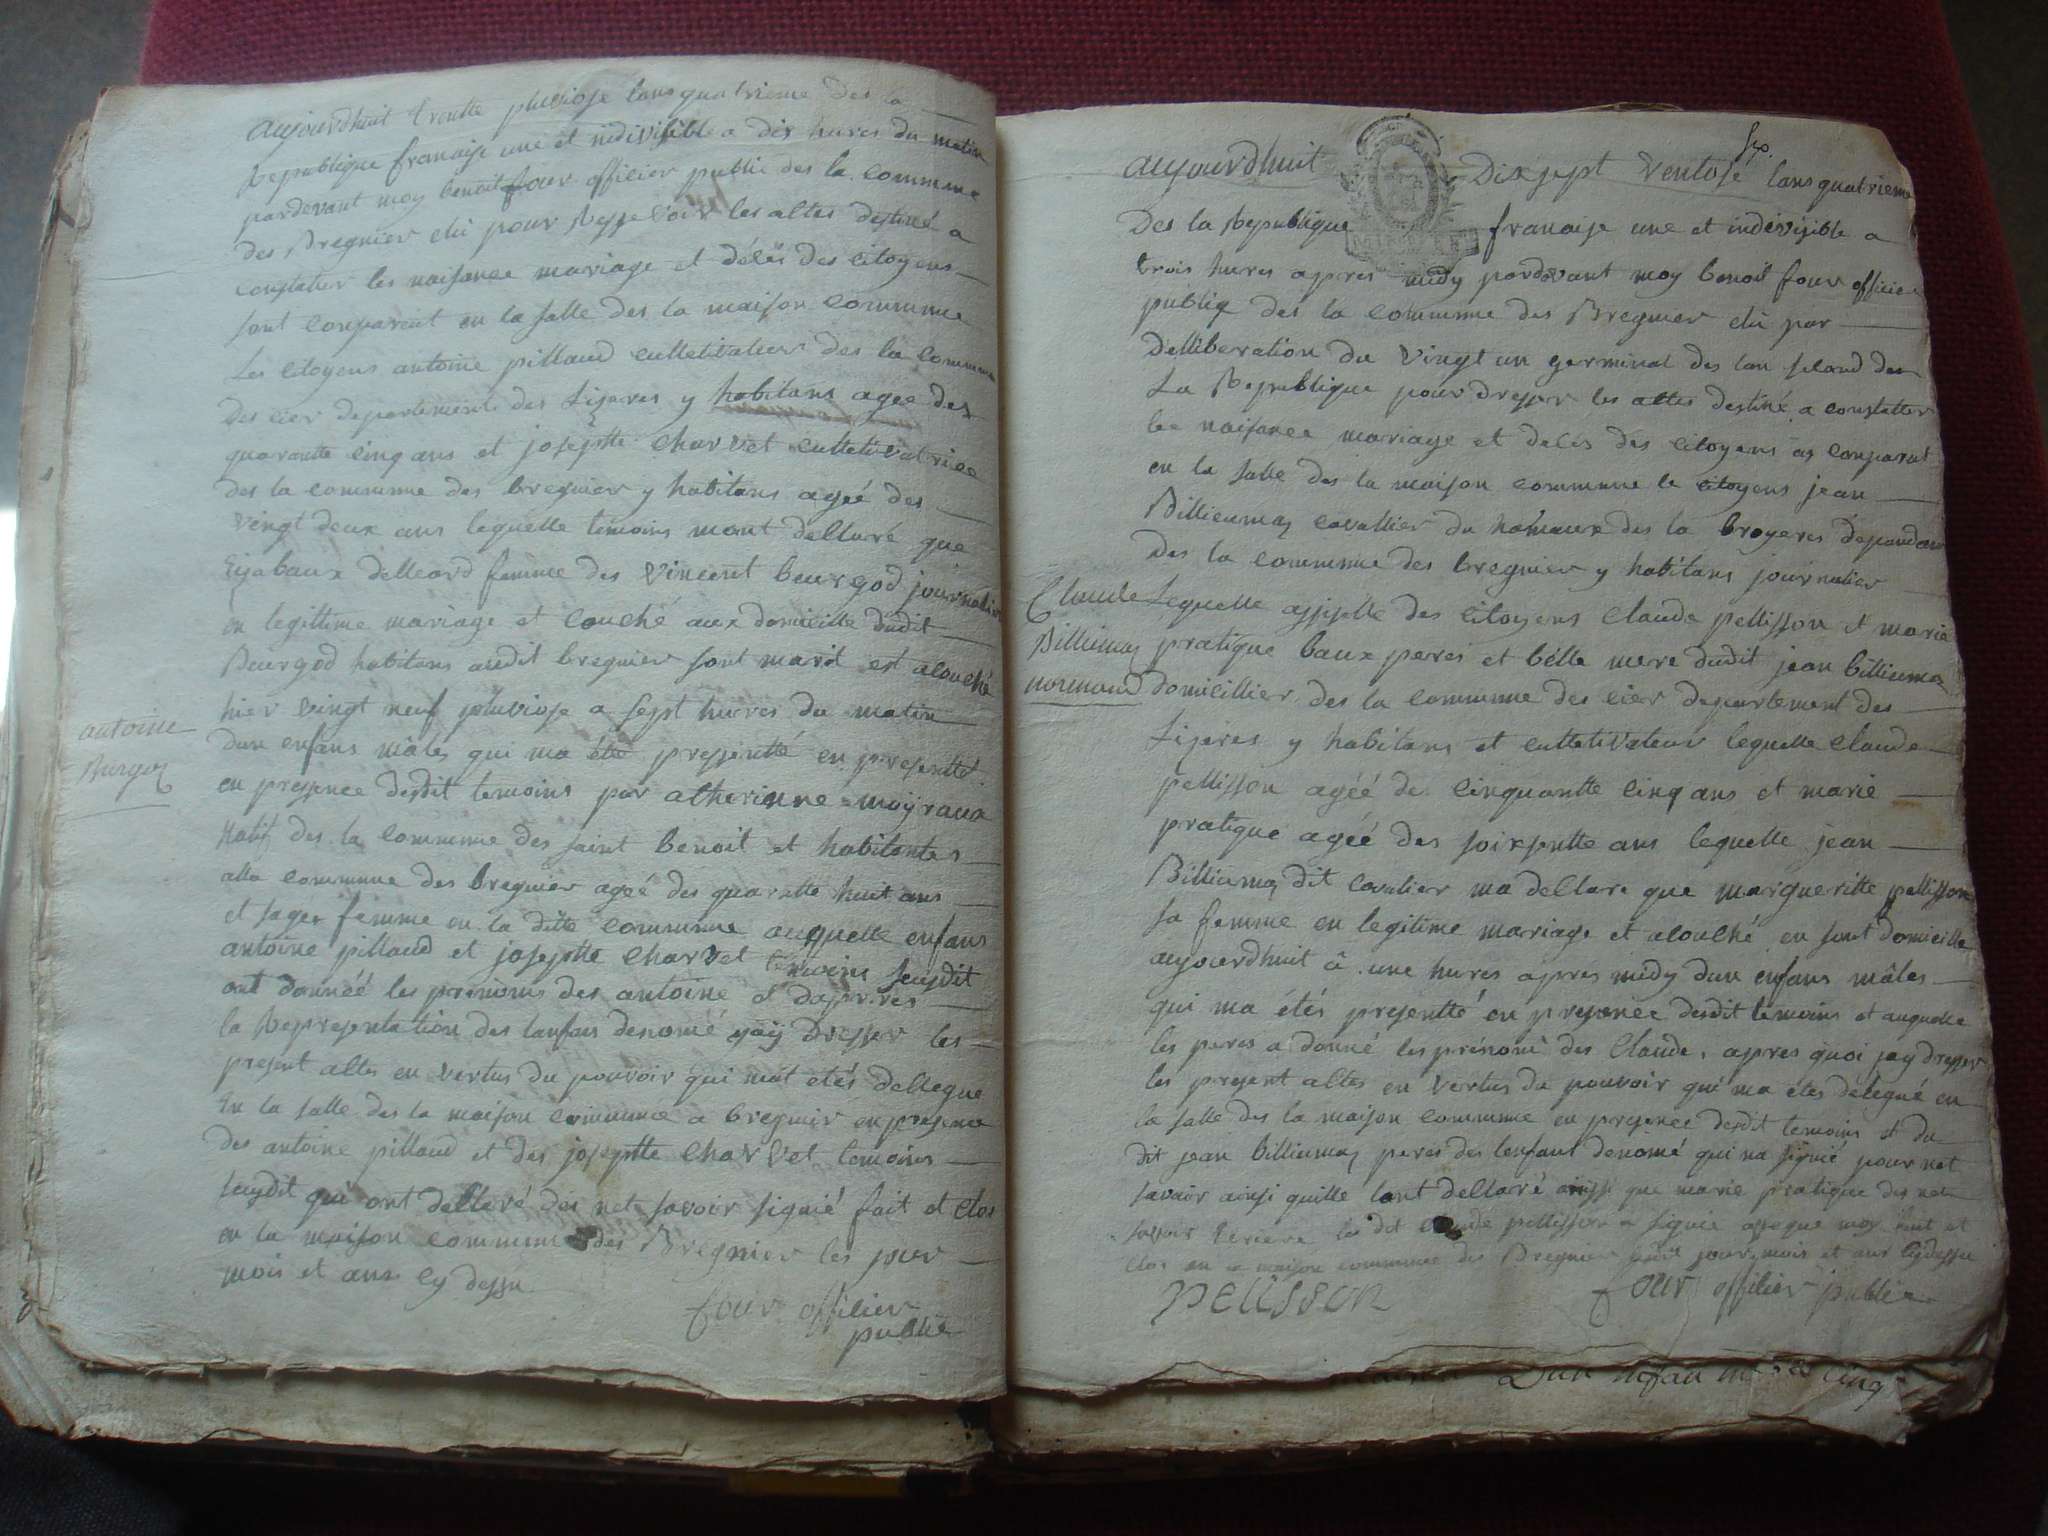 aujourdhuit trentte pluviose lans quatrieme des la
Republique franaise une et indivisible a dix hures du matin
pardevant moy benoit four officier public des la commune
des Bregnier elu pour Resse voir les altes destiné a
constater les naisance mariage et délés des citoyens
sont conparent en la salle des la maison commune
Les citoyens antoine pillaud culletivateur des la commune
des cier departements des Lizeres y habitans agee des
quarantte cinq ans et josephtte Charvet culletivatrice
des la commune des bregnier y habitans ageé des
vingt deux ans lequelle temoins mont dellaré que
femme des Vincent bourgod journalier
en legittime mariage et couché aux domicille dudit
Bourgod habitans audit bregnier sont marit est alouché
hier vingt neuf pluviose a sept hures du matin
dun enfans mâles qui ma été pressentté en presentté
antoine
Burgoz
en pressence desdit temoins par atherinne moÿraux
Natif des la commune des saint Benoit et habitantes
alla commune des bregnier ageé des quarantte huit ans
et sager femme en la ditte commune auquelle enfans
antoine pillaud et josephtte Charvet temoins susdit
ont donnéé les prenoms des antoine et dapprres
la Representation des lanfans denomé jaÿ Dresser les
present altes en vertus du pouvoir qui mat etés dellegue
En la salle des la maison commune a bregnier en presence
des antoine pillaud et des josephtte Charvet temoins
susdit qui ont dellaré des net savoir signié fait et clos
en la maison commune des Bregnier les jour
mois et ans cy dessu
four offilier
public
aujourdhuit Dixsept Ventose lans quatrieme
Des la Republique franaise une et indivisible a
trois hures apres midy pardevant moy benoit four officier
publiq des la commune des Bregnier elu par
Delliberation du vingt un germinal des lan seland des
La Republique pour dresser les altes destiné a constatter
les naisance mariage et delés des citoyens as conparut
en la salle des la maison commune le citoyens jean
Billiemaz cavallier du hameaux des la broyeres dependans
des la commune des bregnier y habitans journalier
Claude
Billiemaz
normand
Lequelle assistte des citoyens Claude pellisson et marie
pratique baux peres et bélle mere dudit jean billiemaz
domicillier des la commune des cier departement des
Lizeres y habitans et culletivateur lequelle Claude
pellisson agéé de cinquantte cinq ans et marie
pratique agéé des soixsentte ans lequelle jean
Billiemaz dit cavalier ma dellare que margueritte pellisson
sa femme en legitime mariage et alouché en sont domicille
aujourdhuit â une hures apres midy dun enfans mâles
qui ma étés presentté en presence desdit temoins et auquelle
les peres a donné les prénoms des Claude, apres quoi jay dresser
les present altes en vertus du pouvoir qui ma étés delegué en
la salle des la maison commune en presence desdit temoins et du
dit jean billiemaz peres des lenfant denomé qui na signié pour net
savair ainsi quille lont dellaré ainssi que marie pratique des net
savoir le dit Claude pellisson a signié aveque moy fait et
clos en la maison commune des Bregnier jour mois et ans cydessu
pelisson
four offilier public
Dun nfan cinq